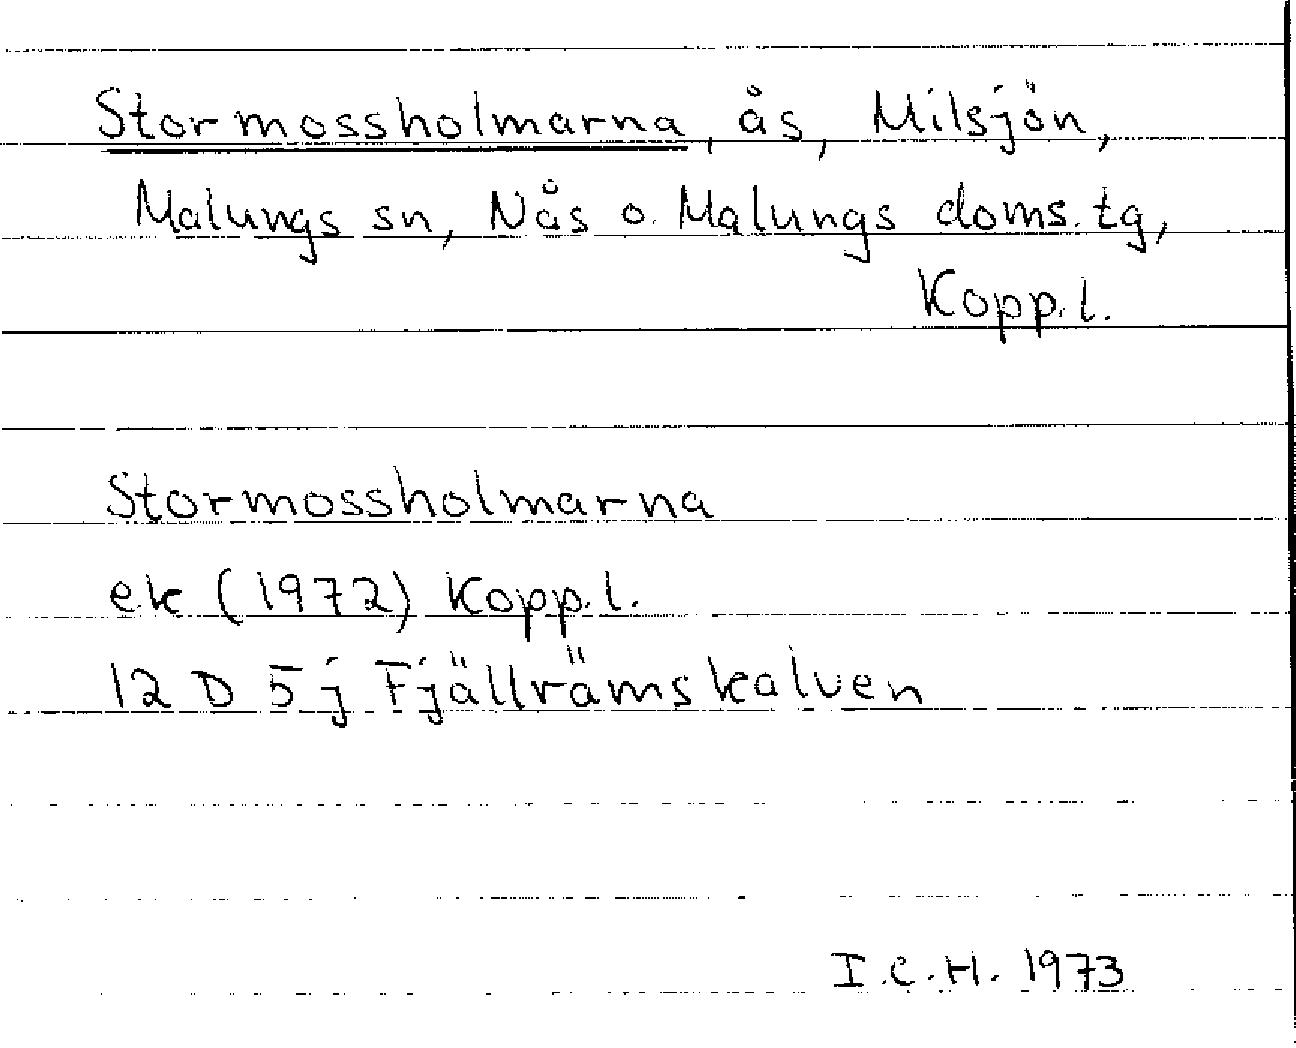 Stormossholmarna, ås, Milsjön,
Malungs sn, Nås o. Malungs doms.tg,
Kopp.l.
Stormossholmarna
ek (1972) Kopp.l.
12 D 5 j Fjällrämskalven
I.C.H. 1973